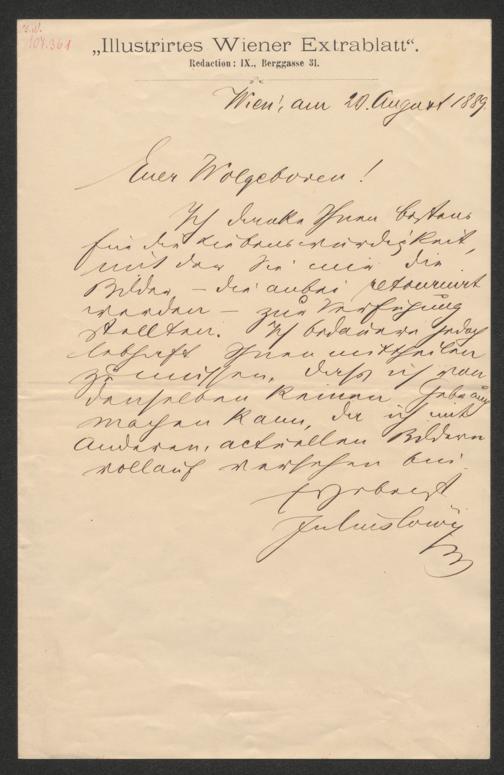 I.N.
104.361
„Illustrirtes Wiener Extrablatt“.
Redaction: IX., Berggasse 31.
Wien, am 20. August 1889.
Euer Wolgeboren!
Ich danke Ihnen bestens
für die Liebenswürdigkeit,
mit der Sie mir die
Bilder – die anbei retournirt
werden – zur Verfügung
stellten. Ich bedauere jedoch
lebhaft Ihnen mittheilen
zu müssen, daß ich von
denselben keinen Gebrauch
machen kann, da ich mit
anderen, actuellen Bildern
vollauf versehen bin.
Ergebenst
Julius Löwy